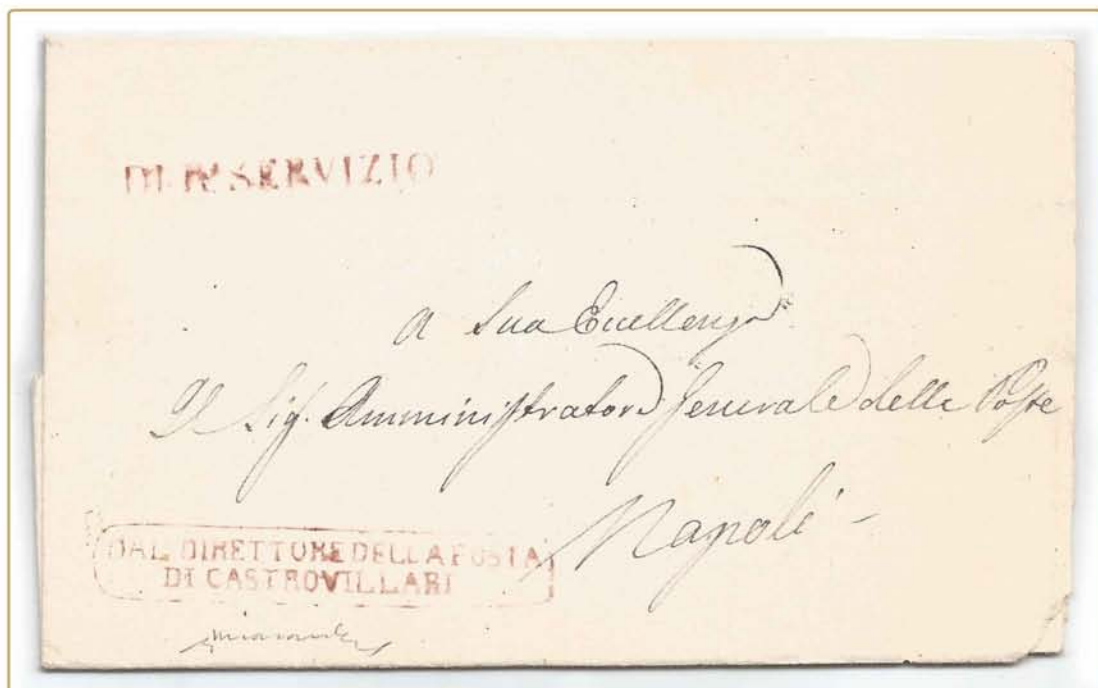 DI Rˡ SERVIZIO
A Sua Eccellenza
Il Sig. Amministratore Generale delle Poste
Napoli -
DAL DIRETTORE DELLA POSTA
DI CASTROVILLARI